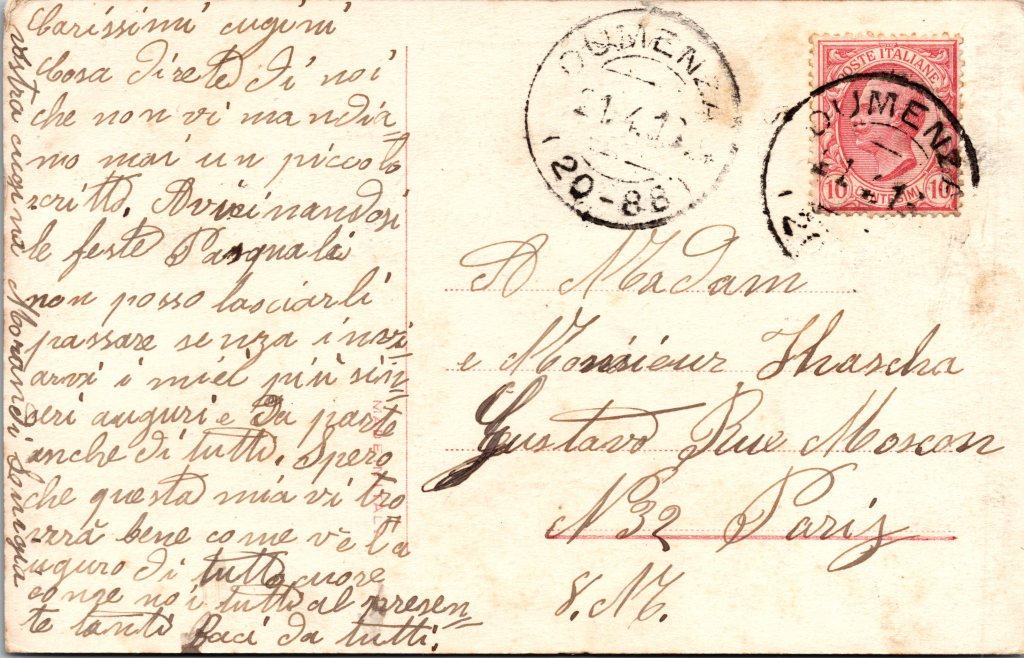 Carissimi cugini
Cosa direte di noi
che non vi mandia-
mo mai un piccolo
scritto. Avvicinandosi
le feste Pasquali
non posso lasciarli
passare senza invi=
arvi i miei più sin=
ceri auguri e da parte
anche di tutti. Spero
che questa mia vi tro
verrà bene come vè l'a
uguro di tutto cuore
come noi tutti al presen=
te tanti baci da tutti.
vostra cugina Morandi Luigia
DUMENZA
21.4.1
(20-88)
POSTE ITALIANE
10 10
DUMENZA
A Madam
e Monsieur Thascha
Gustavo Rue Moscon
N 32 Paris
S. M.